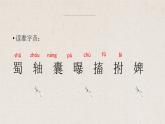 •读准字音:
shǔ zhóu náng pù chī fǔ pí
蜀 轴 囊 曝 摛 拊 婢